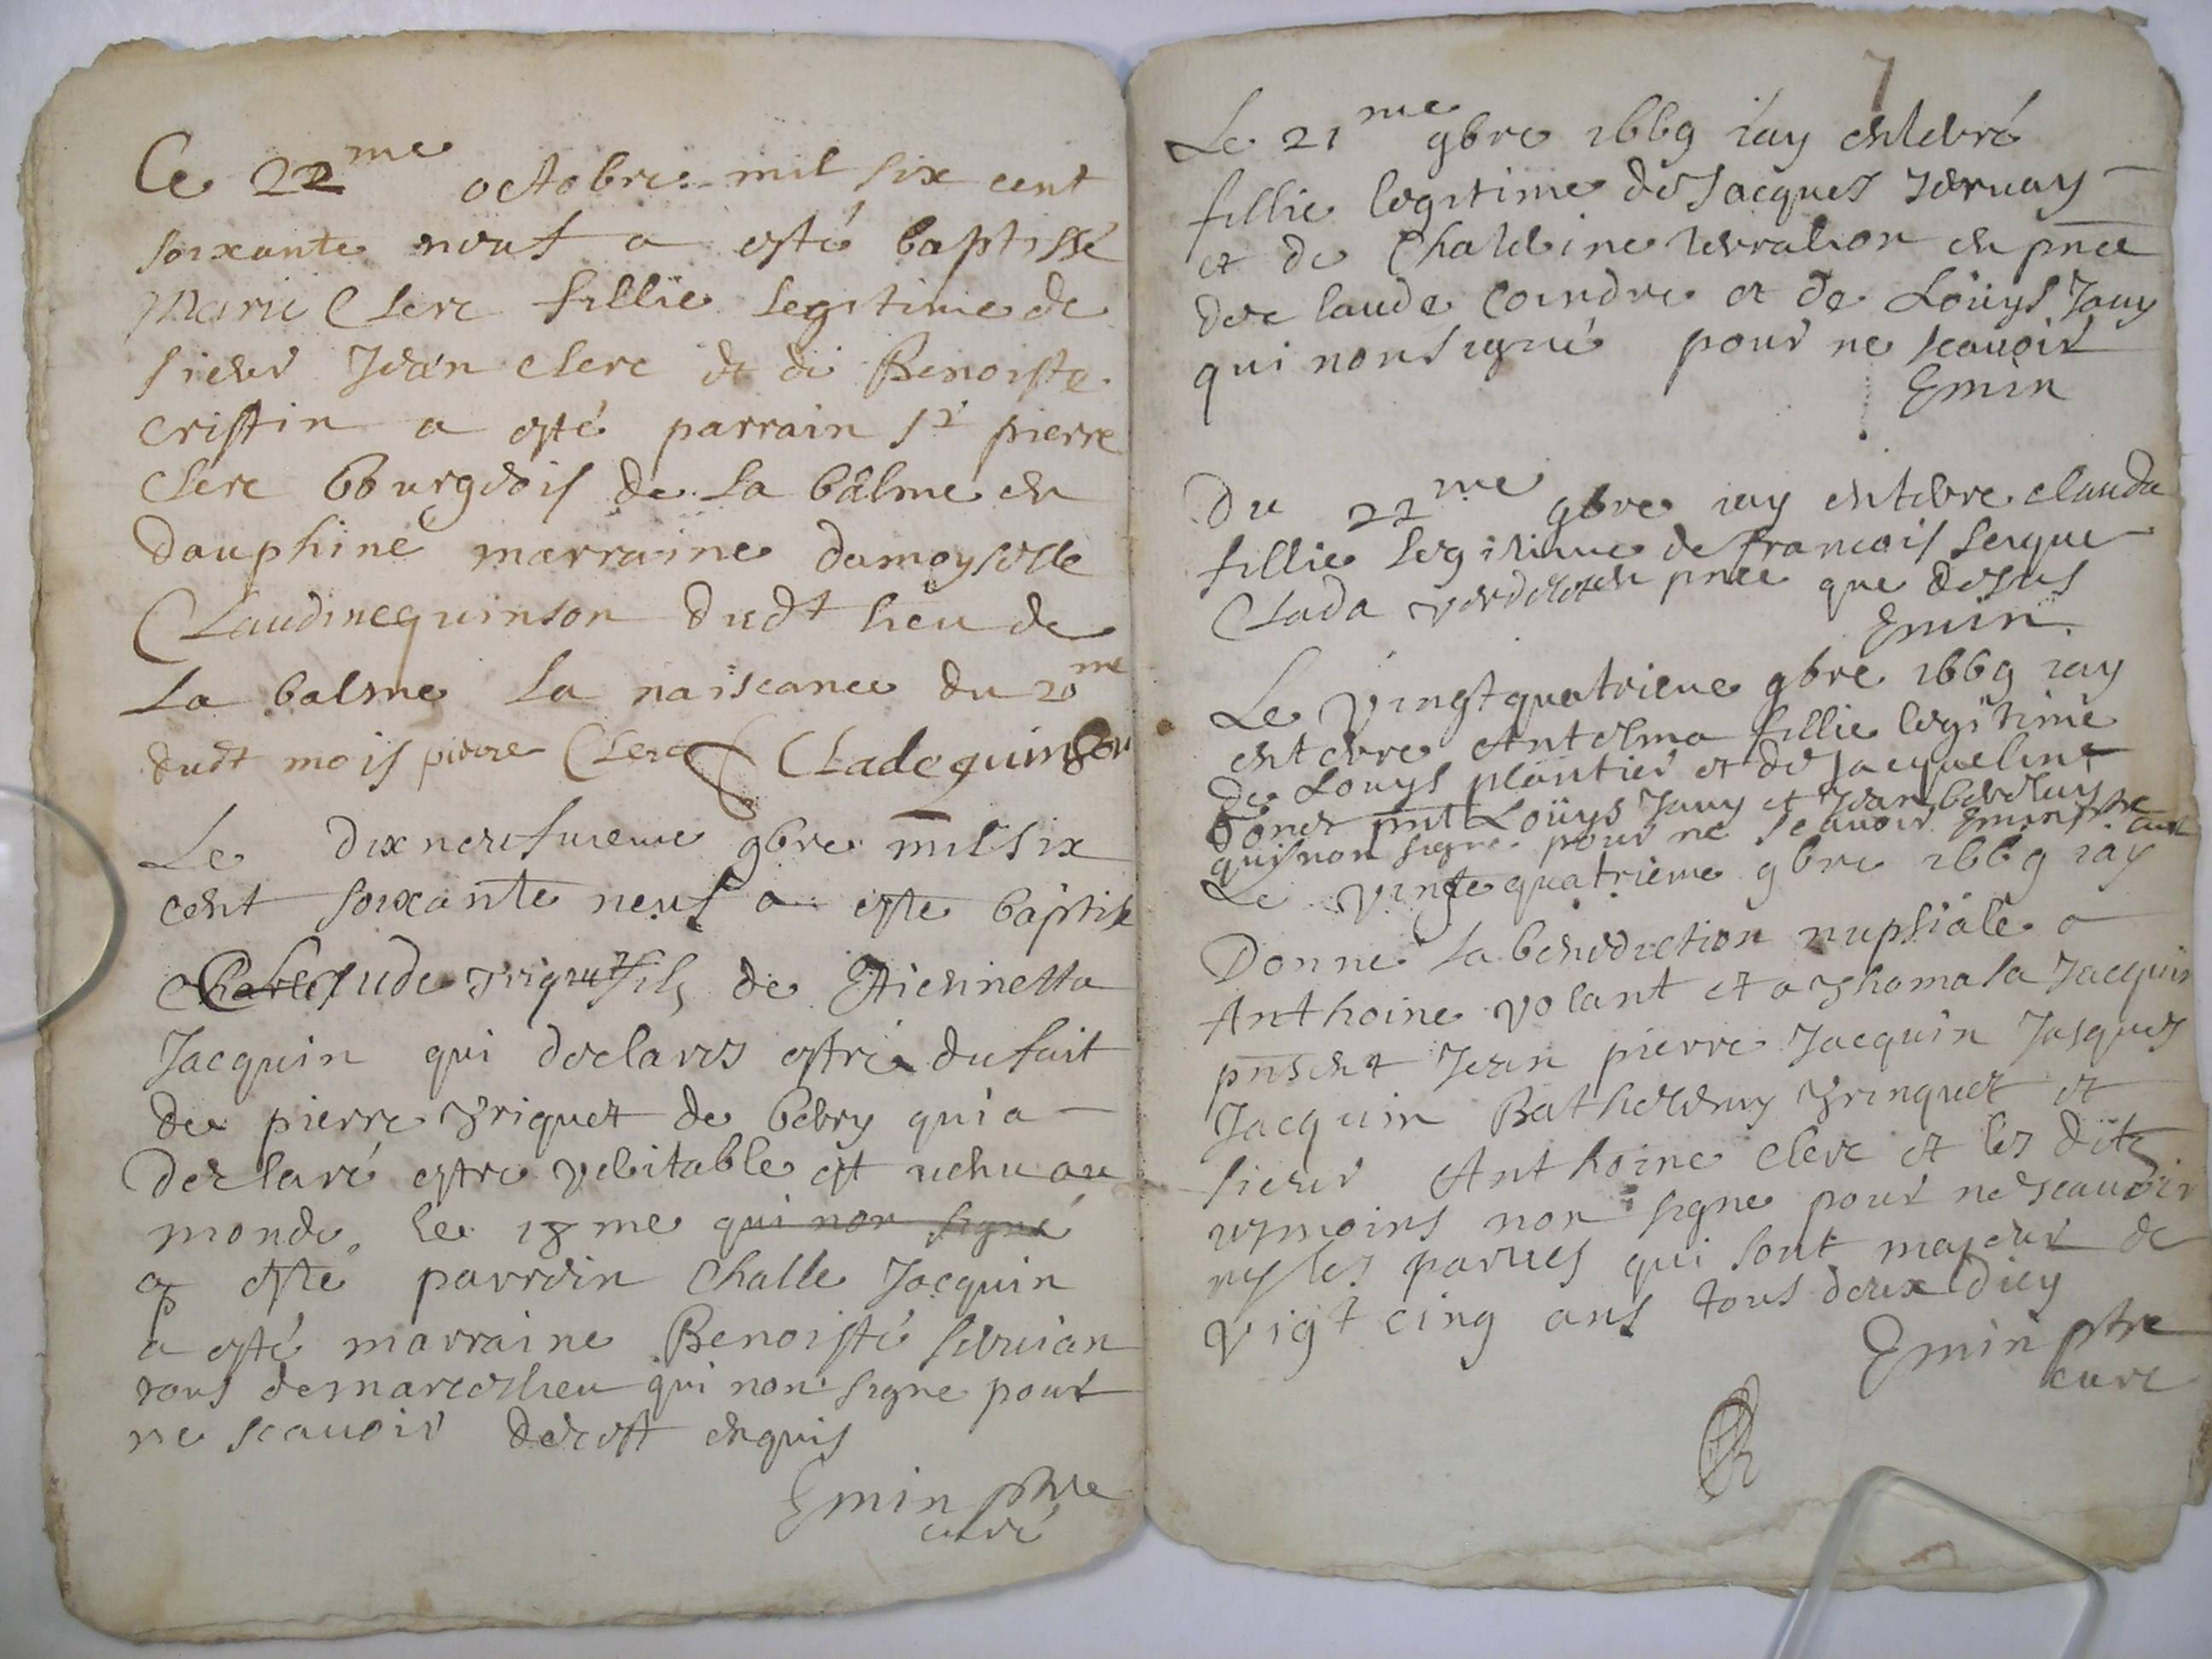 Ce 22me octobre mil six cent
soixante neuf a esté baptissé
Marie Clerc fillie legitime de
sieur Jean clerc et de Benoiste
Cristin a esté parrain sr pierre
Clerc bourgeois de la balme en
dauphiné marraine damoyselle
Claudine quinson dudt lieu de
la balme la naiscance du 20me
dudt mois pierre Clerc Clade quinson
Le dix neufuieme 9bre mil six
cent soixante neuf a este baptise
Claude Triquet fils de Etiennetta
Jacquin qui declares estre du fait
de pierre Triquet de bebry qui a
declaré estre veritable est venu au
monde le 18me qui non signé
a esté parrein Challe Jacquin
a esté marraine Benoisté servian
tous de marcoslieu qui non signe pour
ne scauoir de ce enquis
Emin ptre
curé
7
Le 21me 9bre 1669 iay enteré
fillie legitime de Jacques Jernay
et de Chaldine en pnce
de Claude Coindre et de Loüys Jany
qui non signé pour ne scauoir
Emin
Du 22me 9bre iay entere clauda
fillie legitime de francois
Clada en pnce que desus
Emin
Le vingt quatrieme 9bre 1669 iay
entere Antelma fillie legitime
de Louys plantier et de Jacqueline
pnt Loüys Jany et Jean
qui non signe pour ne scauoir Emin ptre curé
Le vingte quatrieme 9bre 1669 iay
Donné la benediction nupsiale a
Anthoine volant et a thomasa Jacquin
present Jean pierre Jacquin Jasques
Jacquin Bathelemy Trinquet et
sieur Anthoine clerc et les dits
temoins non signe pour ne scauoir
ny les parties qui sont majeur de
vigt cinq ans tous deux dicy
Emin ptre
curé